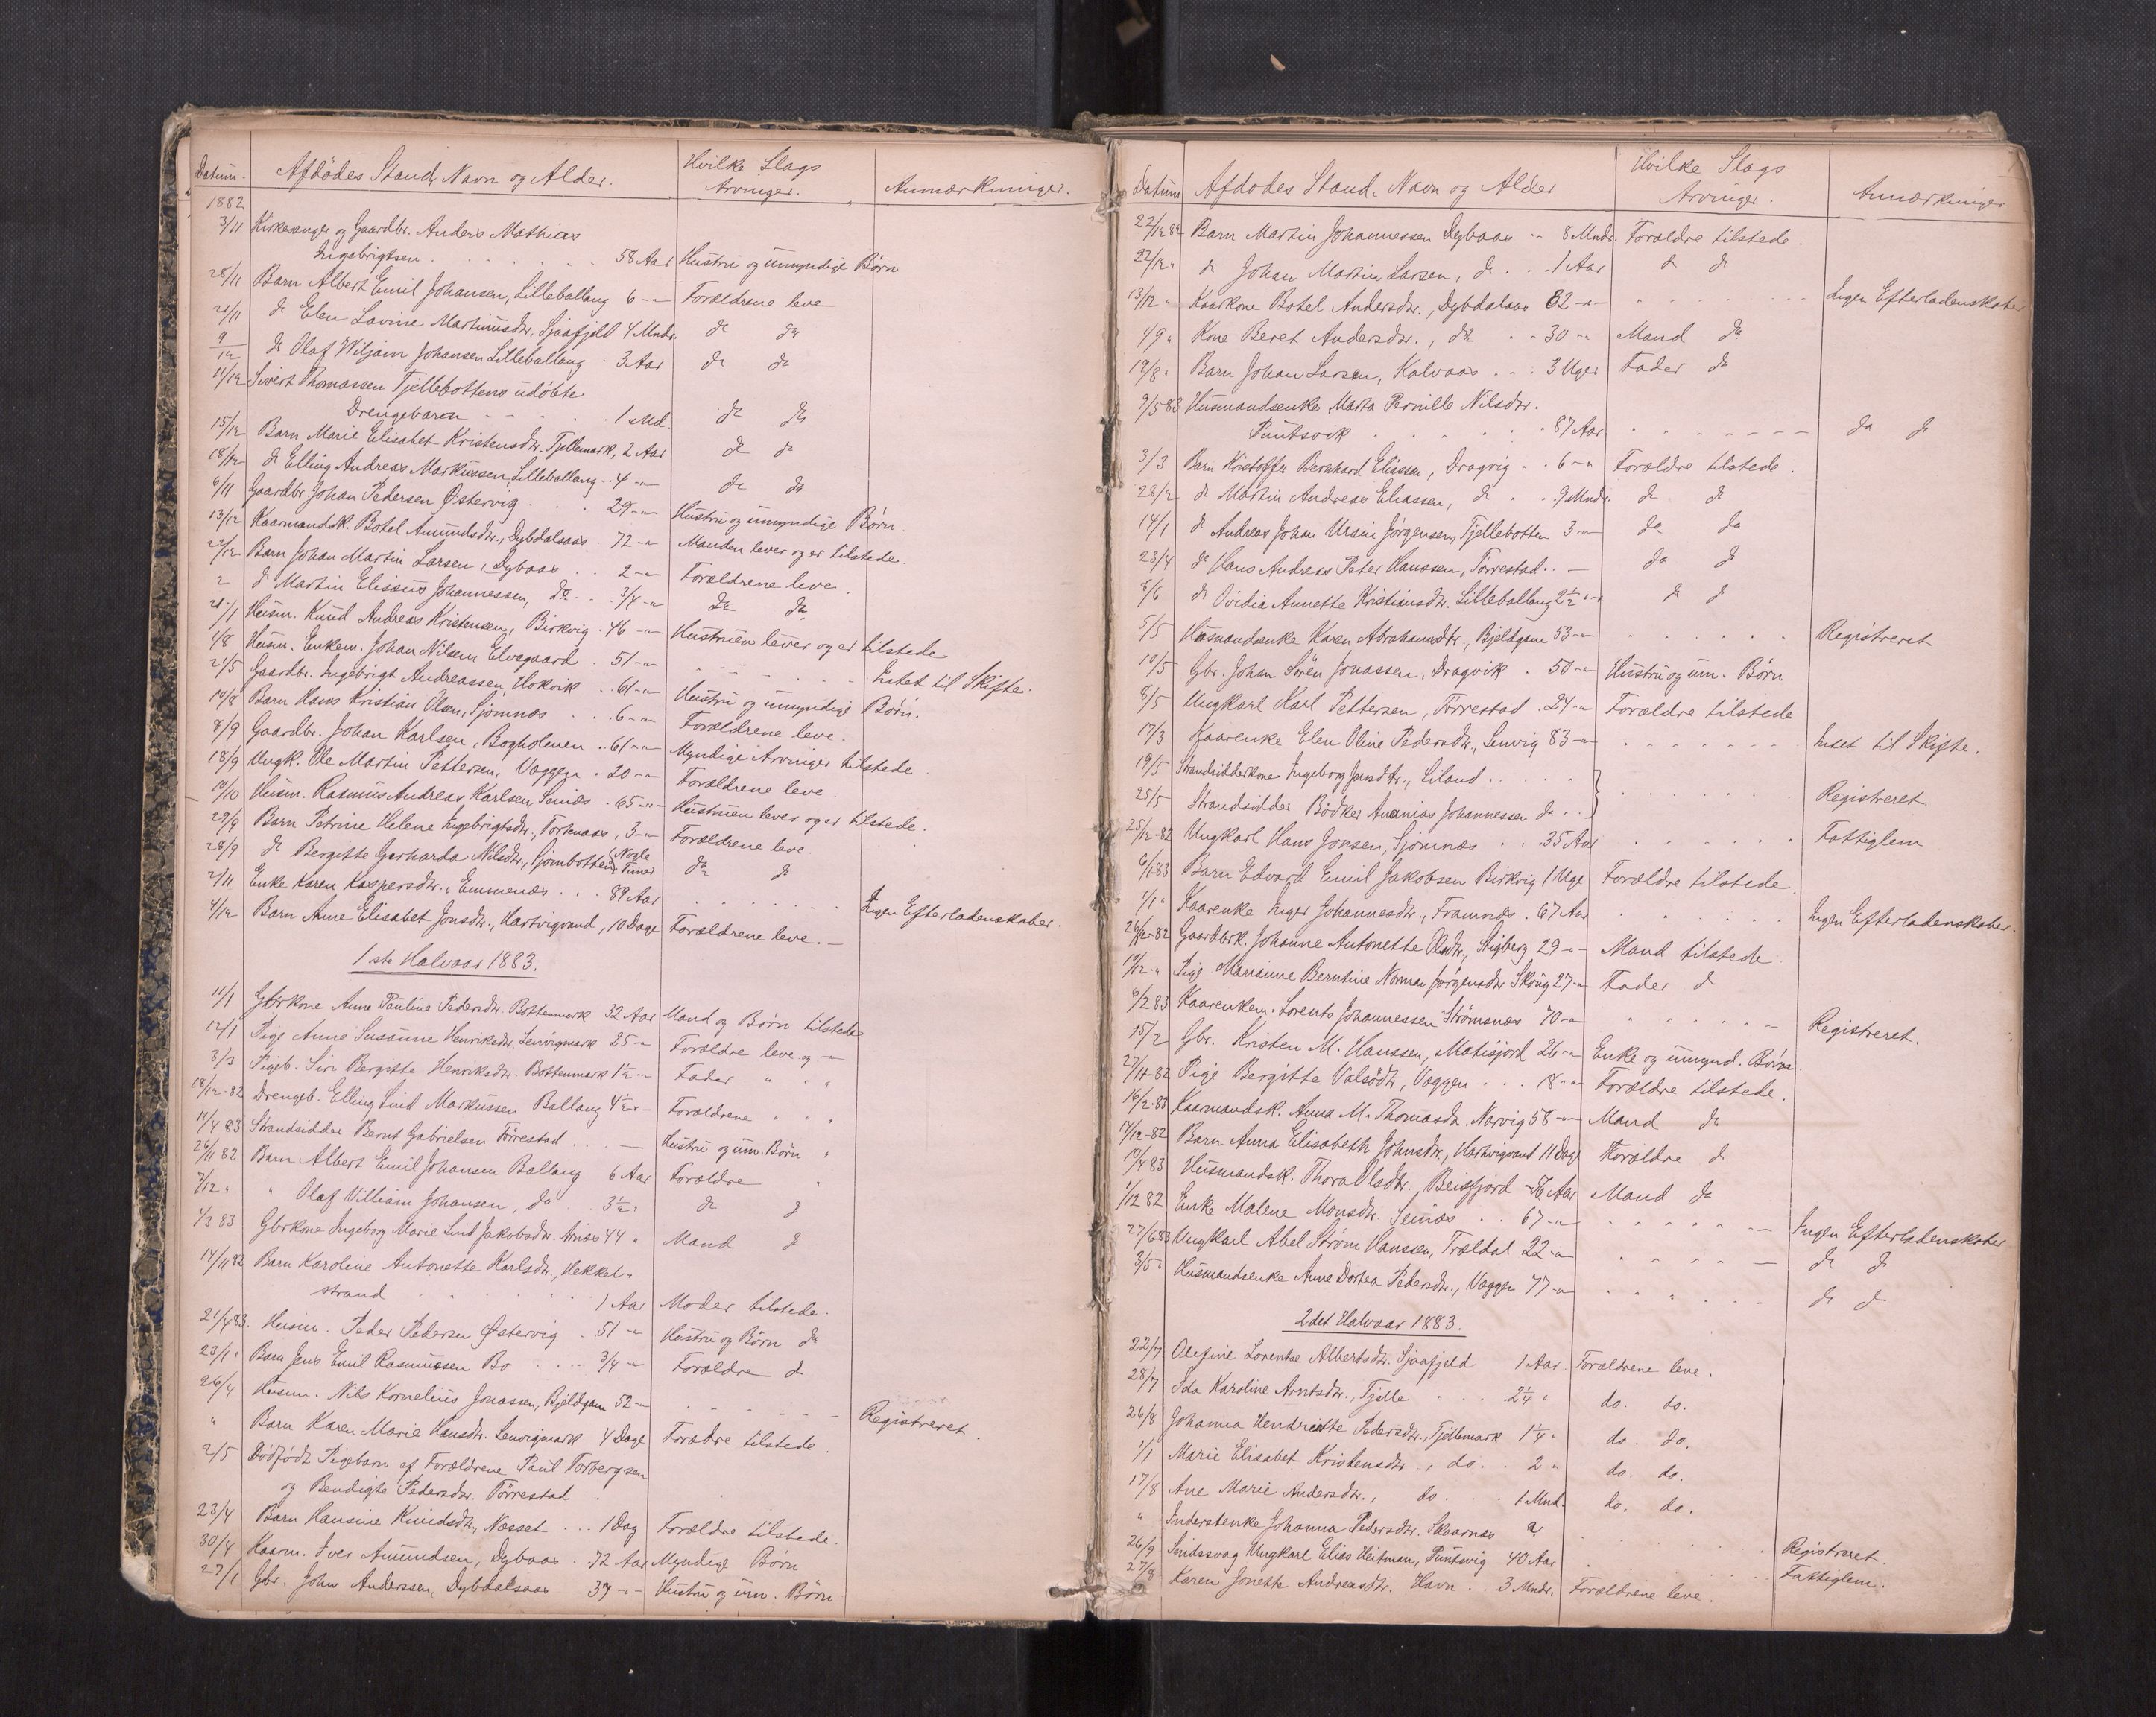 Datum. Afdödes Stand, Navn og Alder. Hvilke Slags Arvinger. Anmærkninger.
1882
3/11 Kirkesanger og Gaardbr. Anders Mathias
Ingebrigtsen 58 Aar Hustru og umyndige Børn
28/11 Barn Albert Emil Johansen, Lilleballang 6 -"- Forældrene leve
21/11 do Elen Lavine Martinusdtr. Sjaafjeld 4 Mndr. do do
9/12 do Olaf Wiljam Johansen Lilleballang 3 Aar do do
11/12 Sivert Thomassen Tjellebottens udöbte
Drengebarn 1 Md. do do
15/12 Barn Marie Elisabet Kristensdtr. Tjellemark, 2 Aar do do
18/12 do Elling Andreas Markussen, Lilleballang 4 -"- do do
6/11 Gaardbr. Johan Pedersen Østervig 29 -"- Hustru og umyndige Børn.
13/12 Kaarmandsk. Botel Amundsdtr., Dybdalsaas 72 -"- Manden lever og er tilstede.
22/12 Barn Johan Martin Larsen, Dybaas 2 -"- Forældrene leve.
2 do Martin Elisæus Johannessen, do 3/4 -"- do do
21/1 Husm. Knud Andreas Kristensen, Birkvig 46 -"- Hustruen lever og er tilstede
1/8 Husm. Enkem. Johan Nilsen Elvegaard 51 -"- Intet til Skifte.
21/5 Gaardbr. Ingebrigt Andreassen, Hokvik 61 -"- Hustru og umyndige Børn.
10/8 Barn Hans Kristian Olsen, Sjomnæs 6 -"- Forældrene leve.
8/9 Gaardbr. Johan Karlsen, Bogholmen 61 -"- Myndige Arvinger tilstede
18/9 Ungk. Ole Martin Pettersen, Væggen 20 -"- Forældrene leve.
10/10 Husm. Rasmus Andreas Karlsen, Seines 65 -"- Hustruen lever og er tilstede.
29/9 Barn Petrine Helene Ingebrigtsdtr., Tortenaas, 3 -"- Forældrene leve.
28/9 do Bergitte Gerharda Nilsdtr., Sjombotten Nogle Timer do do
2/11 Enke Karen Kaspersdtr., Emmenæs 89 Aar Ingen Efterladenskaber.
4/12 Barn Anne Elisabet Jonsdtr., Hartvigvand, 10 Dage Forældrene leve.
1ste Halvaar 1883.
11/1 Gbrkone Anne Pauline Pedersdtr. Bottenmark 32 Aar Mand og Børn tilstede
12/1 Pige Anne Susanne Henriksdtr. Lenvigmark 25 -"- Forældre leve og -"-
3/3 Pigeb. Siri Bergitte Henriksdtr. Bottenmark 1½ -"- Fader " "
18/12-82 Drengeb. Elling Lind Markussen Ballang 4½ -"- Forældrene " "
11/4 83 Strandsidder Bernt Gabrielsen Törrestad Hustru og um. Børn "
26/11 82 Barn Albert Emil Johansen Ballang 6 Aar Forældre "
7/12 " " Olaf Villiam Johansen, do 3½ " do do
1/3 83 Gbrkone Ingeborg Marie Lind Jakobsdtr. Arnæs 44 " Mand do
14/11 82 Barn Karoline Antonette Karlsdtr., Hekkel-
strand 1 Aar Moder tilstede.
21/4 83. Husm. Peder Pedersen Østervig 51 -"- Hustru og Børn do
23/1 " Barn Jens Emil Rasmussen Bo 3/4 -"- Forældre do
26/4 Husm. Nils Kornelius Jonassen, Bjeldgam 52 -"- Registreret.
" Barn Karen Marie Hansdtr. Lenvigmark 4 Dage Forældre tilstede.
2/5 Dödfödt Pigebarn af Forældrene Paul Torbergsen
og Bendigte Pedersdtr. Törrestad
23/4 Barn Hansine Knudsdtr., Næsset 1 Dag Forældre tilstede.
30/4 Kaarm. Iver Amundsen, Dybaas 72 Aar Myndige Børn
27/1 Gbr. John Anderssen, Dybdalsaas 37 -"- Hustru og um. Børn
Datum Afdödes Stand, Navn og Alder Hvilke Slags Arvinger. Anmærkninger
22/12 82 Barn Martin Johannessen Dybaas 8 Mndr. Forældre tilstede.
22/12 " do Johan Martin Larsen, do 1 Aar do do
13/12 " Kaarkone Botel Andersdtr., Dybdalsaas 82 -"- Ingen Efterladenskaber
1/9 " Kone Beret Andersdtr., do 30 -"- Mand do
19/8 " Barn Johan Larsen, Kalvaas 3 Uger Fader do
9/5 83 Husmandsenke Marta Pernille Nilsdtr.
Puntsvik 87 Aar do do
3/3 Barn Kristoffer Bernhard Eliassen, Dragvig 6 -"- Forældre tilstede.
28/2 do Martin Andreas Eliassen, do 9 Mndr. do do
14/1 do Andreas Johan Ursin Jørgensen, Tjellebotten 3 -"- do do
23/4 do Hans Andreas Peter Hanssen, Törrestad do do
8/6 do Ovidia Annette Kristiansdtr. Lilleballang 2½ -"- do do
5/5 Husmandsenke Karen Abrahamsdtr., Bjeldgam 53 -"- Registreret
10/5 Gbr. Johan Sören Jonassen, Dragvik 50 -"- Hustru og um. Børn
8/5 Ungkarl Karl Pettersen, Törrestad 24 -"- Forældre tilstede
17/3 Kaarenke Elen Oline Pedersdtr., Lenvig 83 -"- Intet til Skifte.
19/5 Strandsidderkone Ingeborg Jensdtr., Liland
25/5 Strandsidder Bödker Ananias Johannessen do Registreret.
25/12-82 Ungkarl Hans Jonsen, Sjomnæs 35 Aar Fattiglem
6/1-83 Barn Edvard Emil Jakobsen Birkvig 1 Uge Forældre tilstede.
1/1 " Kaarenke Inger Johannesdtr., Framnæs 67 Aar Ingen Efterladenskaber.
26/12-82 Gaardbrk. Johanne Antonette Olsdtr., Stigberg 29 -"- Mand tilstede
19/12 " Pige Marianne Berntine Norman Jørgensdtr Skoug 27 -"- Fader do
6/2 83 Kaarenkem. Lorents Johannessen Strömsnæs 70 -"- Registreret.
15/2 Gbr. Kristen M. Hanssen, Matisjord 26 -"- Enke og umynd. Børn.
27/11-82 Pige Bergitte Valsödtr, Væggen 18 -"- Forældre tilstede.
16/2-83 Kaarmandsk. Anna M. Thomasdtr. Narvig 58 -"- Mand do
14/12-82 Barn Anna Elisabeth Johnsdtr., Hartvigvand 11 Dage Forældre do
10/4 83 Husmandsk. Thora Olsdtr., Beisfjord 56 Aar Mand do
1/12 82 Enke Malene Monsdtr. Seines 67 -"- Ingen Efterladenskaber
27/6 83 Ungkarl Abel Strøm Hanssen, Trældal 22 -"- do do
3/5 " Husmandsenke Anne Dortea Pedersdtr., Væggen 77 -"- do do
2det Halvaar 1883.
22/7 Olefine Lorentse Albertsdtr. Sjaafjeld 1 Aar. Forældrene leve.
28/7 Ida Karoline Arntsdtr., Tjelle 2¼ " do. do.
26/8 Johanna Hendriette Pedersdtr., Tjellemark 1¼ " do. do.
1/1 Marie Elisabet Kristensdtr., do. 2 " do. do.
17/8 Ane Marie Andersdtr., do. 1 Mnd. do. do.
" Inderstenke Johanna Pedersdtr. Skaarnæs Registreret.
26/9 Sindssvag Ungkarl Elias Heitman, Puntsvig 40 Aar Fattiglem.
27/8 Karen Jonette Andreasdtr. Havn 3 Mndr. Forældrene leve.